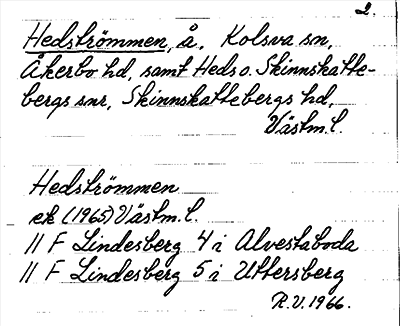 2.
Hedströmmen, å, Kolsva sn,
Åkerbo hd, samt Hed s o. Skinnskatte-
bergs snr, Skinnskattebergs hd,
Västm. l.
Hedströmmen
ek (1965) Västm. l.
// F Lindesberg 4 i Alvestaboda
// F Lindesberg 5 i Uttersberg
R.V. 1966.